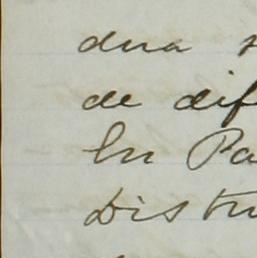 dura
de dif
En Pa
Distri